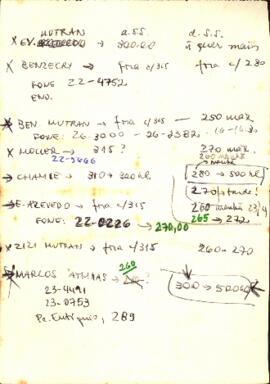 MUTRAN a.S.S. d.S.S.
X EV. 300.00 à quer mais
X BENZECRY → fra c/315 fra c/280
FONE 22-4752
END.
X BEN MUTRAN → fra c/315 — 250 max
FONE: 26-3000 - 26-2382.
X MOLLER → 315? 270 max.
22-5666 260 manhã
→ CHAMIE → 310 → 300 hl 280 → 500 hl
270 p/tarde!
→ E. AZEVEDO → fra c/315 260 manhã 23/4
FONE: 22-0226 → 270,00 265 → 272
X ZIZI MUTRAN → fra c/315 260 - 270
260
→ MARCOS ATHIAS → 300 → 500
23-4491
23-0753
Pç. Eutíquio, 289